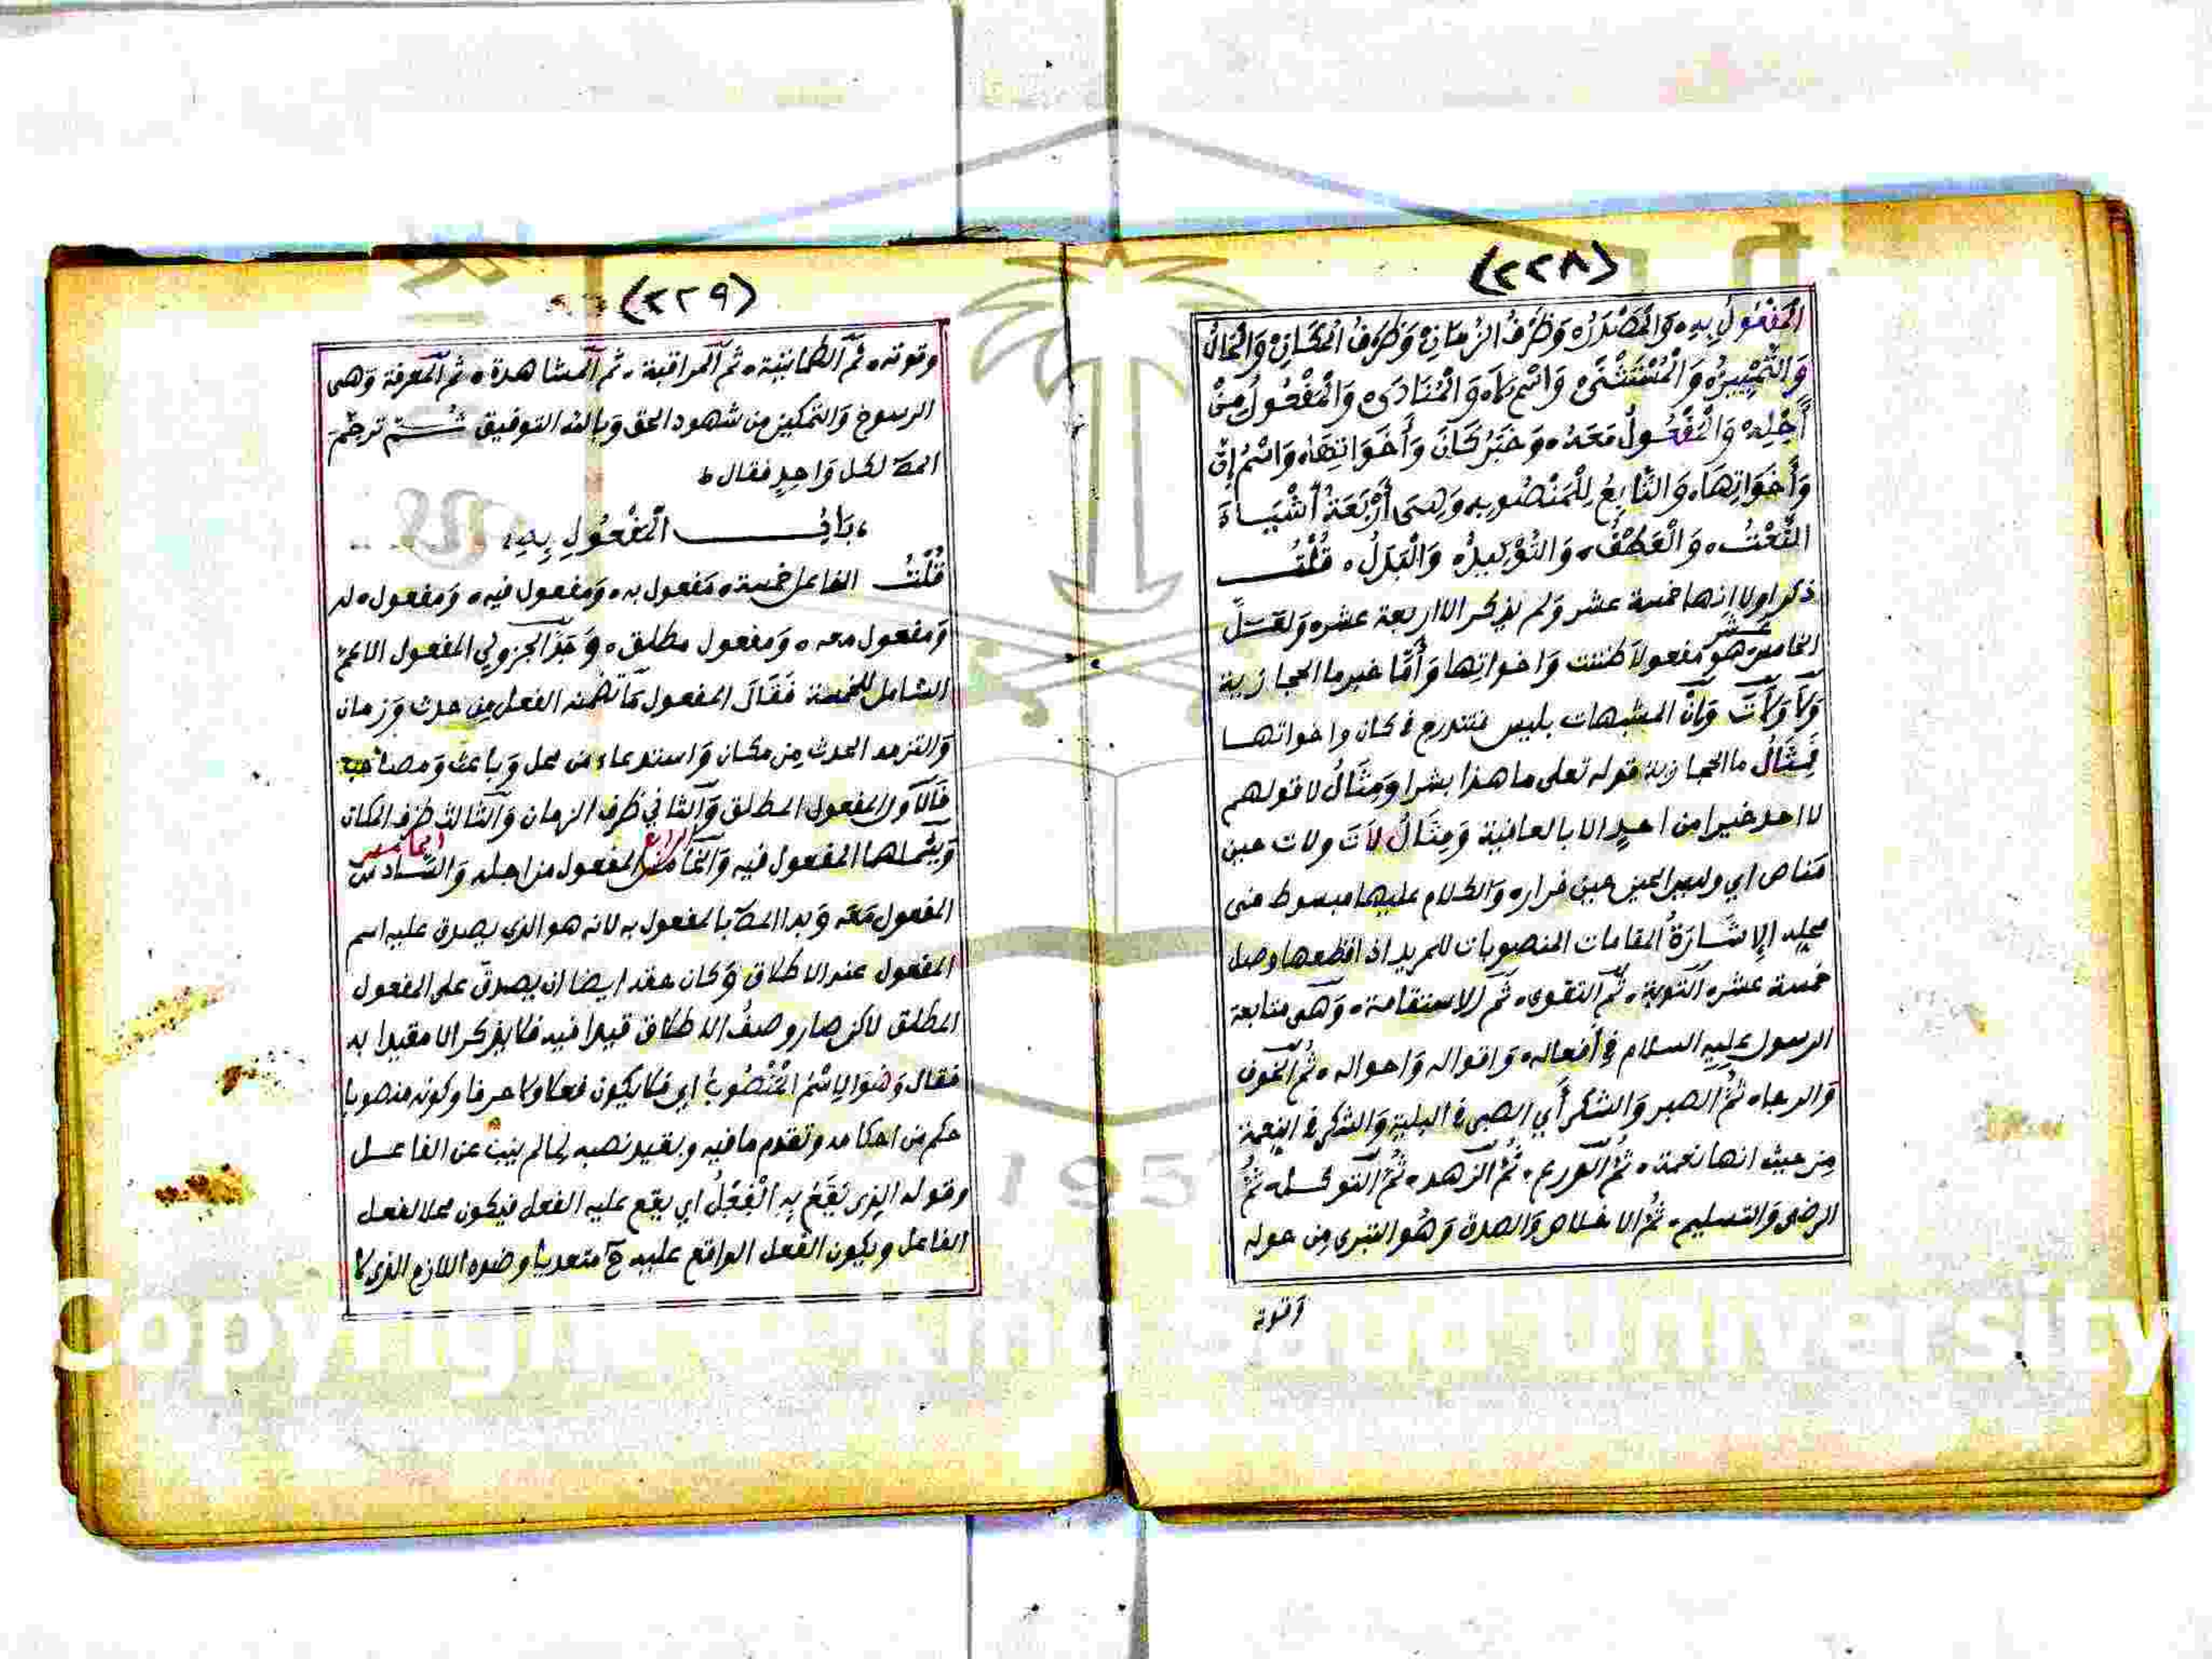 (٢٢٨)
الْمَفْعُولِ بِهِ، وَالْمَصْدَرُ، وَظَرْفُ الزَّمَانِ، وَظَرْفُ الْمَكَانِ، وَالْحَالُ
وَالتَّمْيِيزُ، وَالْمُسْتَثْنَى، وَاسْمُ لَا، وَالْمُنَادَى، وَالْمَفْعُولُ مِنْ
أَجْلِهِ، وَالْمَفْعُولُ مَعَهُ، وَخَبَرُ كَانَ وَأَخَوَاتِهَا، وَاسْمُ إِنَّ
وَأَخَوَاتِهَا، وَالتَّابِعُ لِلْمَنْصُوبِ، وَهِىَ أَرْبَعَةُ أَشْيَاءَ
النَّعْتُ، وَالْعَطْفُ، وَالتَّوْكِيدُ، وَالْبَدَلُ، قُلْتُ
ذكر اولا انها خمسة عشر ولم يذكر الا اربعة عشر، ولعل
الخامس عشر هو مفعولا ظننت واخواتها وأمّا خبر ما الحجازية
ولا ولات وان المشبهات بليس فتندرج في كان واخواتها
فمثال ما الحجازية قوله تعلى ما هذا بشرا ومثال لا قولهم
لا احد خيرا من احدٍ الا بالعافية ومثال لات ولات حين
مناص اي وليس الحين حين فرار، والكلام عليها مبسوط في
محله الإشارة المقامات المنصوبات للمريد اذا قطعها وصل
خمسة عشر، التوبة، ثم التقوى، ثم الاستقامة، وهى متابعة
الرسول عليه السلام في أفعاله، واقواله واحواله، ثم الخوف
والرجاء، ثم الصبر والشكر أي الصبر في البلية والشكر في النعمة
من حيث انها نعمة، ثم الورع، ثم الزهد، ثم التوكل، ثم
الرضى والتسليم، ثم الاخلاص والصدق وهو التبرى من حوله
وقوته
(٢٢٩)
وقوته، ثم الطمانينة، ثم المراقبة، ثم المشاهدة، ثم المعرفة وهى
الرسوخ والتمكين من شهود الحق وبالله التوفيق ثم ترجم
المص لكل واحدٍ فقال
،بَابُ الْمَفْعُولِ بِهِ،
قُلْتُ المفاعل خمسة، مفعول به، ومفعول فيه، ومفعول له
ومفعول معه، ومفعول مطلق، وحد الجزولي المفعول الاعم
الشامل للخمسة فقال المفعول ما تضمنه الفعل من حدث وزمان
والتزمه الحدث من مكان واستدعاء من محل وباعث ومصاحب
فالاول المفعول المطلق والثاني ظرف الزمان والثالث ظرف المكان
ويشملها المفعول فيه والخامس الرابع المفعول من اجله والسادس الخامس
المفعول معه وبدا المص بالمفعول به لانه هو الذي يصدق عليه اسم
المفعول عند الاطلاق وكان حقه ايضا ان يصدق على المفعول
المطلق لاكن صار وصف الاطلاق قيدا فيه فلا يذكر الا مقيدا به
فقال وَهُوَ الِاسْمُ الْمَنْصُوبُ اي فلا يكون فعلا ولا حرفا وكونه منصوبا
حكم من احكامه وتقدم ما فيه وبقيد نصبه لما لم ينب عن الفاعل
وقوله الذِى يَقَعُ بِهِ الْفِعْلُ اي يقع عليه الفعل فيكون محلا لفعل
الفاعل ويكون الفعل الواقع عليه ح متعديا وضده اللازم الذى لا